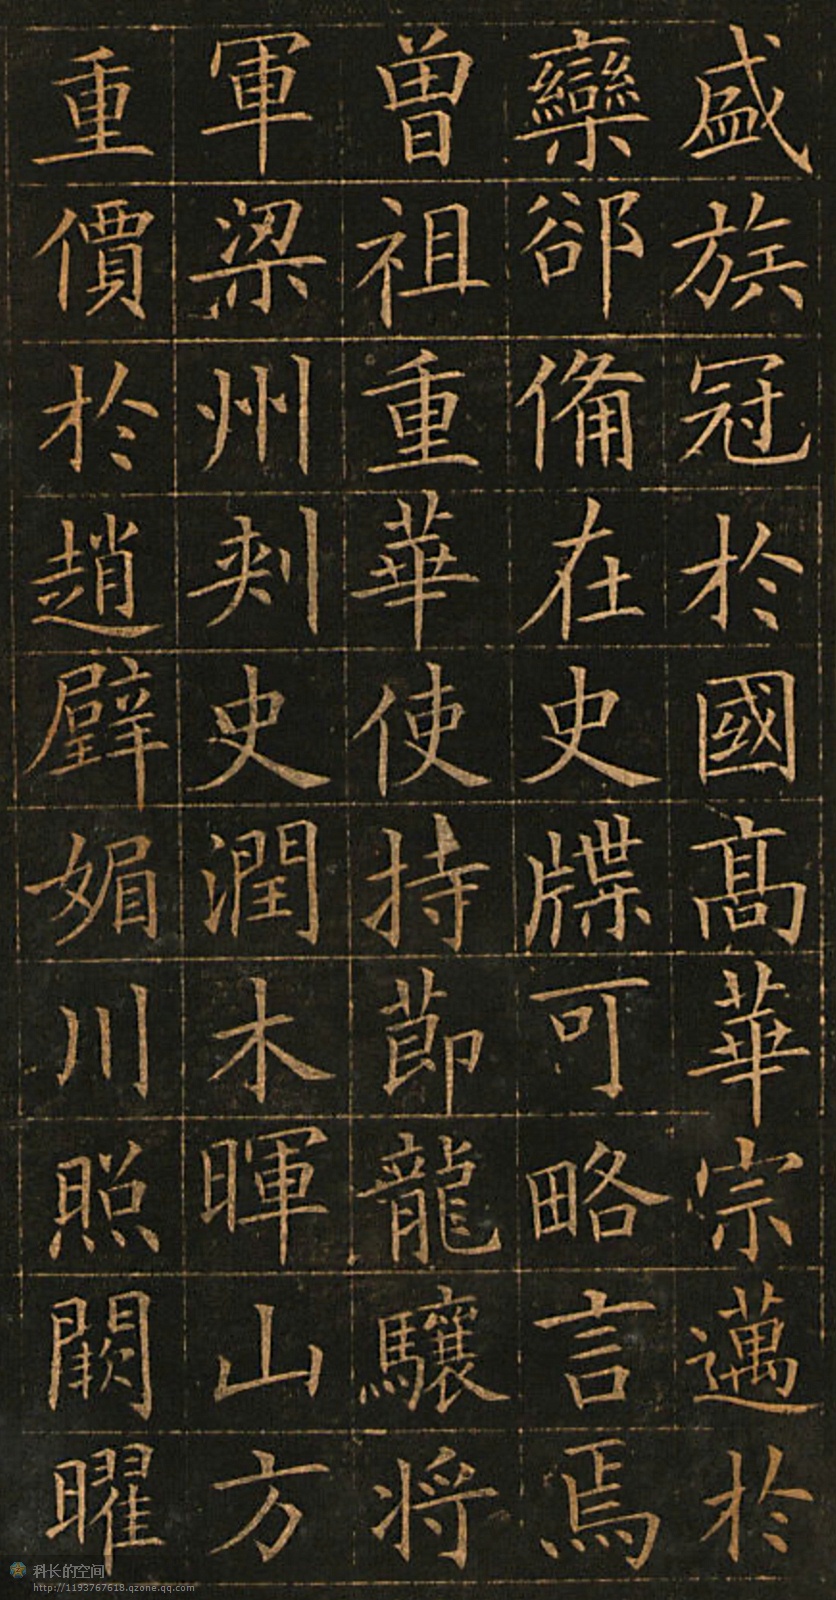 盛族冠於國高華宗邁於
欒郤備在史牒可略言焉
曾祖重華使持節龍驤将
軍梁州刾史潤木暉山方
重價於趙璧媚川照闕曜
科长的空间
http://1193767618.qzone.qq.com